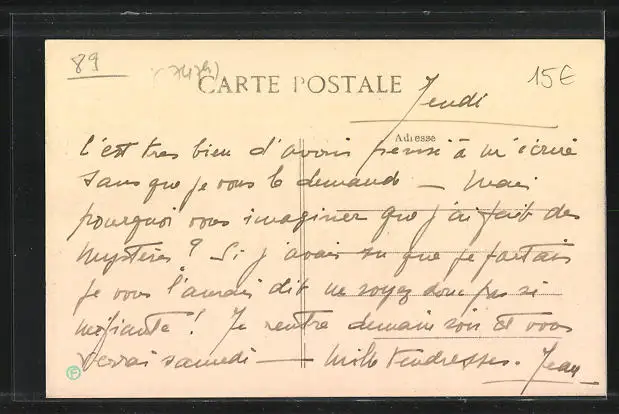 89
CARTE POSTALE
15€
Jeudi
Adresse
C'est tres bien d'avoir pensé à m'écrire
sans que je vous le demande — Mais
pourquoi vous imaginer que j'ai fait des
mystères ? Si j'avais su que je partais
je vous l'aurais dit ne soyez donc pas si
méfiante ! Je rentre demain soir et vous
verrai samedi — Mille tendresses. Jean
F